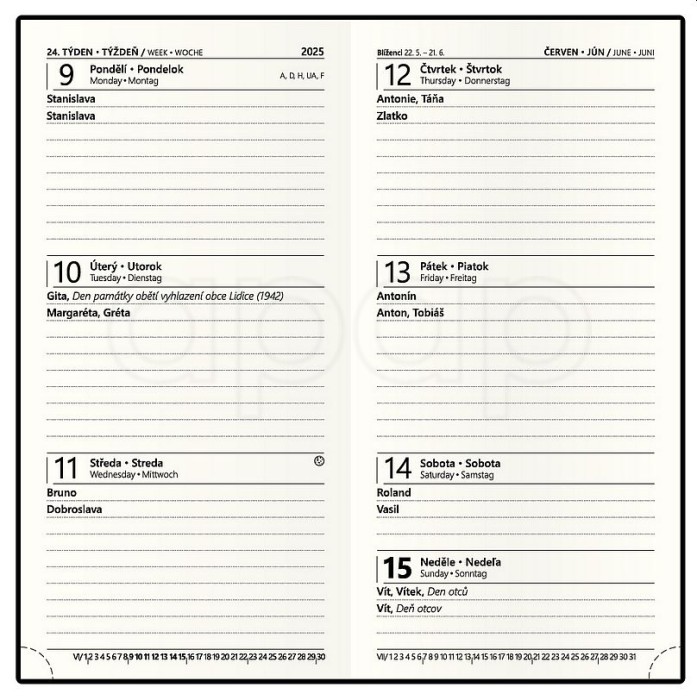 24. TÝDEN • TÝŽDEŇ / WEEK • WOCHE 2025
9 Pondělí • Pondelok A, D, H, UA, F
Monday • Montag
Stanislava
Stanislava
10 Úterý • Utorok
Tuesday • Dienstag
Gita, Den památky obětí vyhlazení obce Lidice (1942)
Margaréta, Gréta
11 Středa • Streda
Wednesday • Mittwoch
Bruno
Dobroslava
VI/1,2 3 4 5 6 7 8,9 10 11 12 13 14 15,16 17 18 19 20 21 22,23 24 25 26 27 28 29,30
Blíženci 22. 5. – 21. 6. ČERVEN • JÚN / JUNE • JUNI
12 Čtvrtek • Štvrtok
Thursday • Donnerstag
Antonie, Táňa
Zlatko
13 Pátek • Piatok
Friday • Freitag
Antonín
Anton, Tobiáš
14 Sobota • Sobota
Saturday • Samstag
Roland
Vasil
15 Neděle • Nedeľa
Sunday • Sonntag
Vít, Vítek, Den otců
Vít, Deň otcov
VII/1 2 3 4 5 6,7 8 9 10 11 12 13,14 15 16 17 18 19 20,21 22 23 24 25 26 27,28 29 30 31
apap